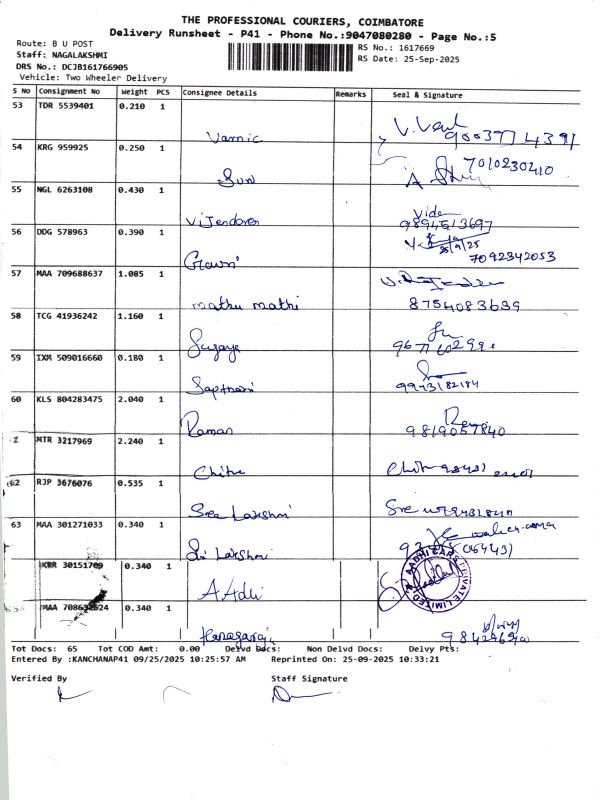 THE PROFESSIONAL COURIERS, COIMBATORE
Delivery Runsheet - P41 - Phone No.:9047080280 - Page No.:5
Route: B U POST
RS No.: 1617669
Staff: NAGALAKSHMI
RS Date: 25-Sep-2025
DRS No.: DCJB161766905
Vehicle: Two Wheeler Delivery
S No Consignment No Weight PCS Consignee Details Remarks Seal & Signature
53 TDR 5539401 0.210 1
54 KRG 959925 0.250 1
7010230210
Sun
55 NGL 6263108 0.430 1
Vijendoren
9894513697
56 DDG 578963 0.390 1
25/9/25
7092342053
Gowri
57 MAA 709688637 1.085 1
mathu mathi
8754083639
58 TCG 41936242 1.160 1
Sugaya
59 IXM 509016660 0.180 1
9943182184
60 KLS 804283475 2.040 1
Raman
9819057840
MTR 3217969 2.240 1
Chitra
62 RJP 3676076 0.535 1
Sree Lakshmi
63 MAA 301271033 0.340 1
Sri Lakshmi
KRR 30151709 0.340 1
AADHI CARS PRIVATE LIMITED
Aadhi
MAA 0.340 1
Kanagaraj
Tot Docs: 65 Tot COD Amt: 0.00 Delvd Docs: Non Delvd Docs: Delvy Pts:
Entered By :KANCHANAP41 09/25/2025 10:25:57 AM Reprinted On: 25-09-2025 10:33:21
Verified By Staff Signature